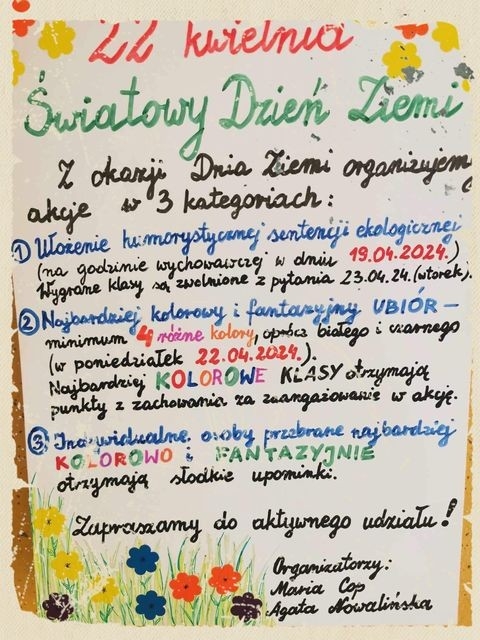 22 kwietnia
Światowy Dzień Ziemi
Z okazji Dnia Ziemi organizujemy
akcje w 3 kategoriach:
1 Ułożenie humorystycznej sentencji ekologicznej
(na godzinie wychowawczej w dniu 19.04.2024.)
Wygrane klasy są zwolnione z pytania 23.04.24.(wtorek).
2 Najbardziej kolorowy i fantazyjny UBIÓR –
minimum 4 różne kolory, oprócz białego i czarnego
(w poniedziałek 22.04.2024.).
Najbardziej KOLOROWE KLASY otrzymają
punkty z zachowania za zaangażowanie w akcję.
3 Indywidualne osoby przebrane najbardziej
KOLOROWO i FANTAZYJNIE
otrzymają słodkie upominki.
Zapraszamy do aktywnego udziału!
Organizatorzy:
Maria Cop
Agata Nowalińska